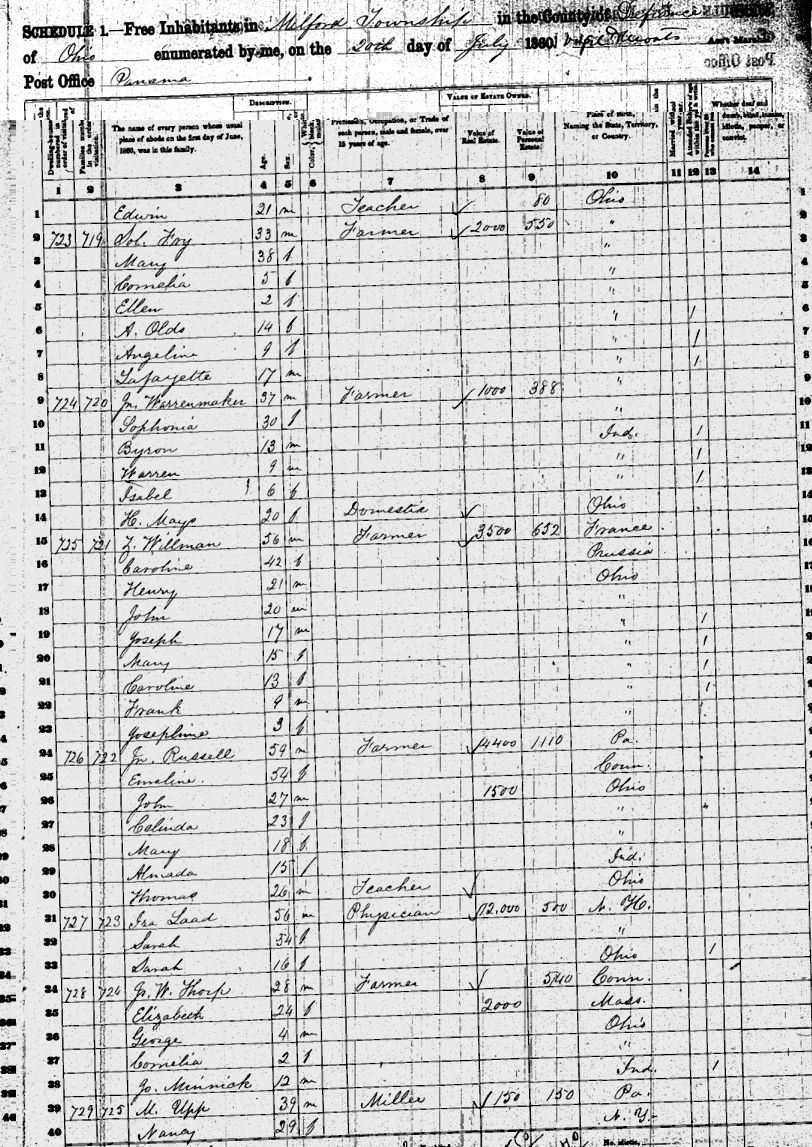 SCHEDULE 1.—Free Inhabitants in Milford Township in the County of Defiance
of Ohio enumerated by me, on the 20th day of July 1860.
Post Office Panama
DESCRIPTION. VALUE OF ESTATE OWNED.
The name of every person whose usual place of abode on the first day of June, 1860, was in this family.
Age. Sex. Color,
Profession, Occupation, or Trade of each person, male and female, over 15 years of age.
Value of Real Estate. Value of Personal Estate.
Place of birth, Naming the State, Territory, or Country.
Whether deaf and dumb, blind, insane, idiotic, pauper, or convict.
1 2 3 4 5 6 7 8 9 10 11 12 13 14
1 Edwin 21 m Teacher 80 Ohio
2 723 719 Sol. Fry 33 m Farmer 2000 550 "
3 Mary 38 f "
4 Cornelia 5 f "
5 Ellen 2 f "
6 A. Olds 14 f " 1
7 Angeline 9 f " 1
8 Lafayette 17 m " 1
9 724 720 Jn. Warrenmaker 37 m Farmer 1000 388 "
10 Sophonia 30 f "
11 Byron 13 m Ind. 1
12 Warren 9 m " 1
13 Isabel 6 f " 1
14 H. Mays 20 f Domestic Ohio
15 725 721 Z. Willman 56 m Farmer 3500 652 France
16 Caroline 42 f Prussia
17 Henry 21 m Ohio
18 John 20 m "
19 Joseph 17 m " 1
20 Mary 15 f " 1
21 Caroline 13 f " 1
22 Frank 9 m " 1
23 Josephine 3 f "
24 726 722 Jn. Russell 59 m Farmer 4400 1110 Pa.
25 Emeline 54 f Conn.
26 John 27 m 1500 Ohio
27 Celinda 23 f "
28 Mary 18 f "
29 Almada 15 f Ind.
30 Thomas 26 m Teacher Ohio
31 727 723 Ira Laad 56 m Physician 12,000 500 N. H.
32 Sarah 54 f "
33 Sarah 16 f Ohio 1
34 728 724 Jo. W. Thorp 28 m Farmer 540 Conn.
35 Elizabeth 24 f 2000 Mass.
36 George 4 m Ohio
37 Cornelia 2 f "
38 Jo. Minnick 12 m Ind. 1
39 729 725 M. Upp 39 m Miller 150 150 Pa.
40 Nancy 29 f N. Y.
No. idiotic,